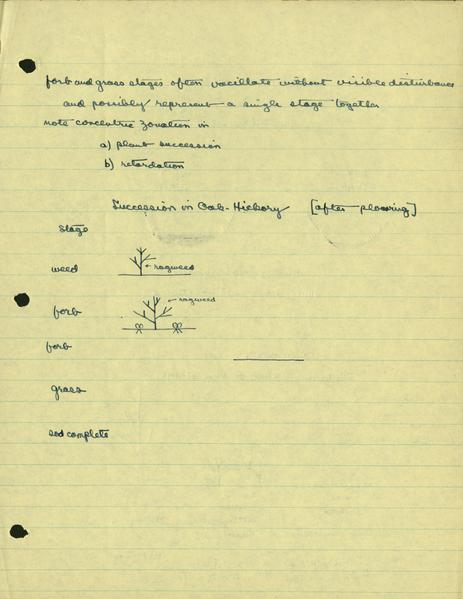 forb and grass stages often vacillate without visible disturbance
and possibly represent a single stage together
note concentric zonation in
a) plant succession
b) retardation
Succession in Oak-Hickory [after plowing]
Stage
weed ← ragweed
forb ← ragweed
forb
grass
sod complete